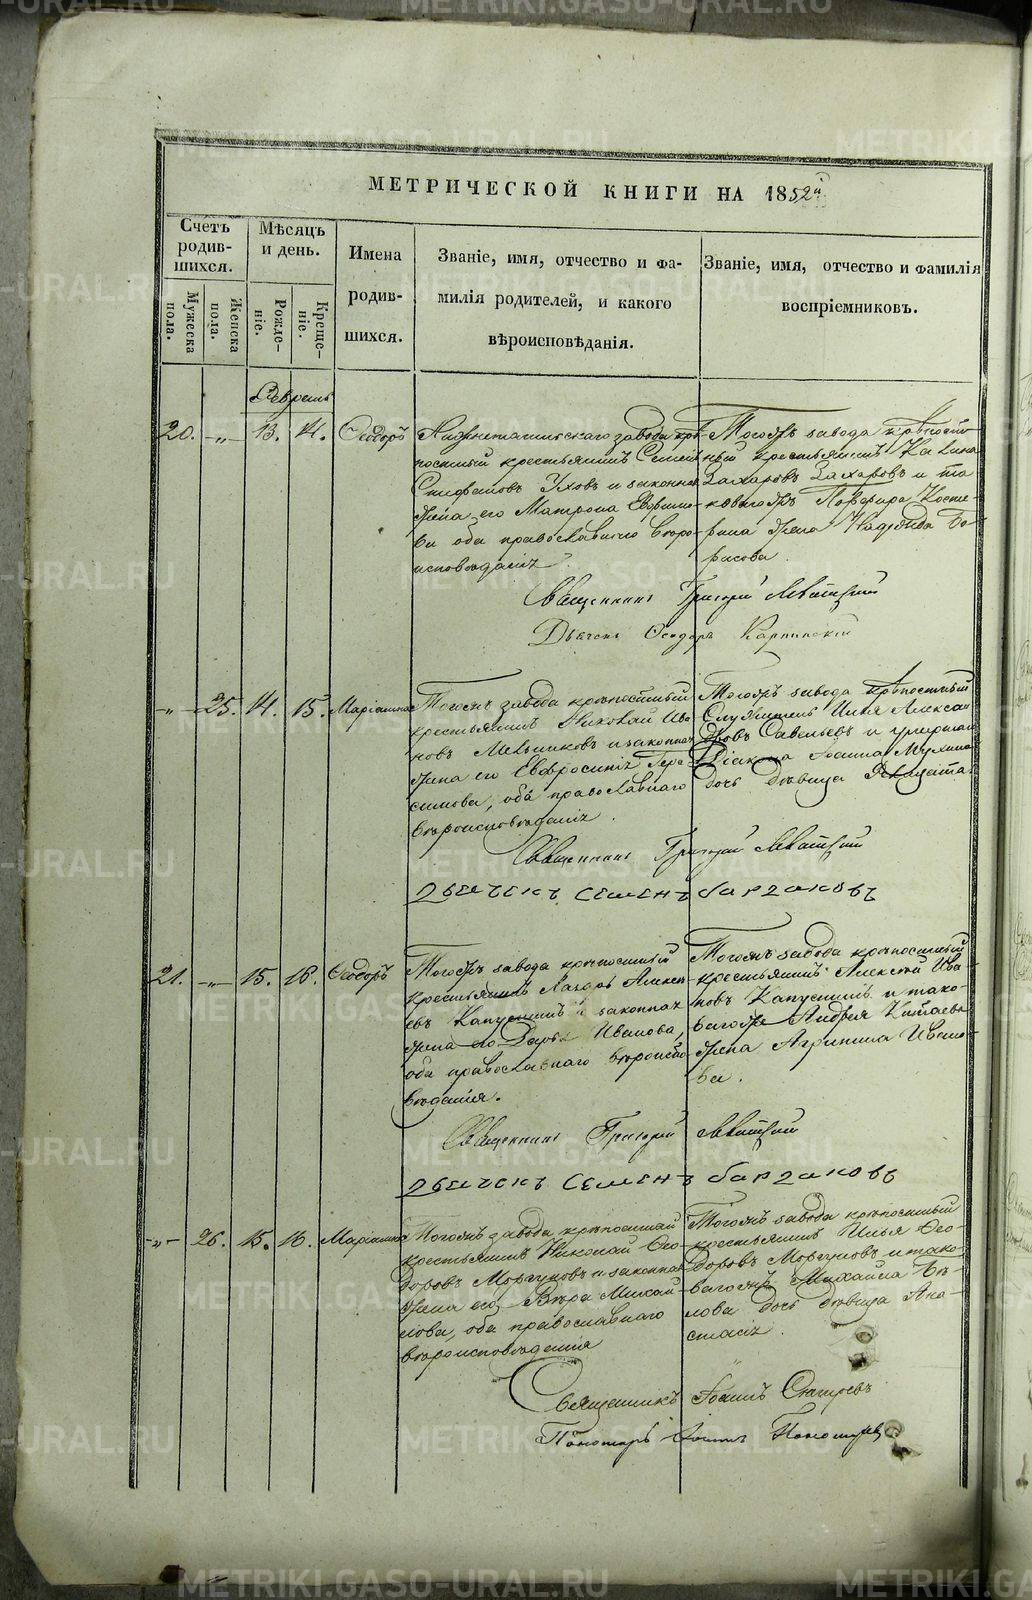 МЕТРИЧЕСКОЙ КНИГИ НА 1852й
Счетъ
родив-
шихся.
Мѣсяцъ
и день.
Имена
родив-
шихся.
Званіе, имя, отчество и фа-
милія родителей, и какого
вѣроисповѣданія.
Званіе, имя, отчество и фамилія
воспріемниковъ.
Мужеска
пола.
Женска
пола.
Рожде-
ніе.
Креще-
ніе.
Февраль
20. -„- 13. 14. Ѳеодоръ
Нижнетагильскаго завода крѣ-
постный крестьянинъ Семенъ
Стефановъ Уховъ и законная
жена его Матрона
ва оба православнаго вѣро-
исповѣданія.
Тогожъ завода крѣпост-
ный крестьянинъ
Захаровъ Захаровъ и та-
коваго жъ Порфира Косте-
рина жена Надежда Бо-
рисова
Священникъ Григорій
Дьячекъ Ѳеодоръ Карпинскій
-„- 25. 14. 15. Маріанна
Тогожъ завода крѣпостный
крестьянинъ Николай Ива-
новъ Мельниковъ и законная
жена его Евфросинія Гера-
симова, оба православнаго
вѣроисповѣданія.
Тогожъ завода крѣпостный
Служитель Илья Алексан-
дровъ Савельевъ и умершаго
Діакона Іоанна Мухина
дочь дѣвица
Священникъ Григорій
дьячекъ Семенъ барзаковъ
21. -„- 15. 16. Ѳеодоръ
Тогожъ завода крѣпостный
крестьянинъ Лазарь Алексѣ-
евъ Капустинъ и законная
жена его Дарья Иванова,
оба православнаго вѣроиспо-
вѣданія.
Тогожъ завода крѣпостный
крестьянинъ Алексѣй Ива-
новъ Капустинъ и тако-
вагожъ Андрея Китаева
жена Агрипина Ивано-
ва.
Священникъ Григорій
дьячекъ Семенъ барзаковъ
-„- 26. 15. 16. Маріанна
Тогожъ завода крѣпостный
крестьянинъ Николай Ѳео-
доровъ Моргуновъ и законная
жена его Вѣра Михай-
лова, оба православнаго
вѣроисповѣданія
Тогожъ завода крѣпостный
крестьянинъ Илья Ѳео-
доровъ Моргуновъ и тако-
вагожъ Михайла Бѣ-
лова дочь дѣвица Ана-
стасія.
Священникъ Іоаннъ
Пономарь Пономаревъ
METRIKI.GASO-URAL.RU